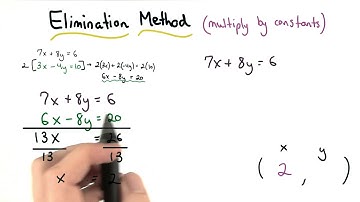 Elimination Method (multiply by constants)
7x + 8y = 6
2 [3x - 4y = 10] → 2(3x) + 2(-4y) = 2(10)
6x - 8y = 20
7x + 8y = 6
7x + 8y = 6
6x - 8y = 20
13x = 26
13 13
x = 2
x y
( 2 , )